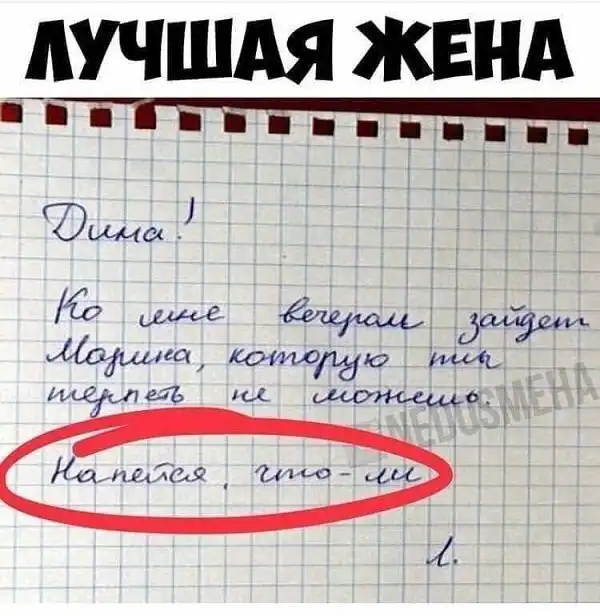 ЛУЧШАЯ ЖЕНА
Дима!
Ко мне вечером зайдет
Марина, которую ты
терпеть не можешь.
NEDOSMEHA
Напейся, что-ли
Л.